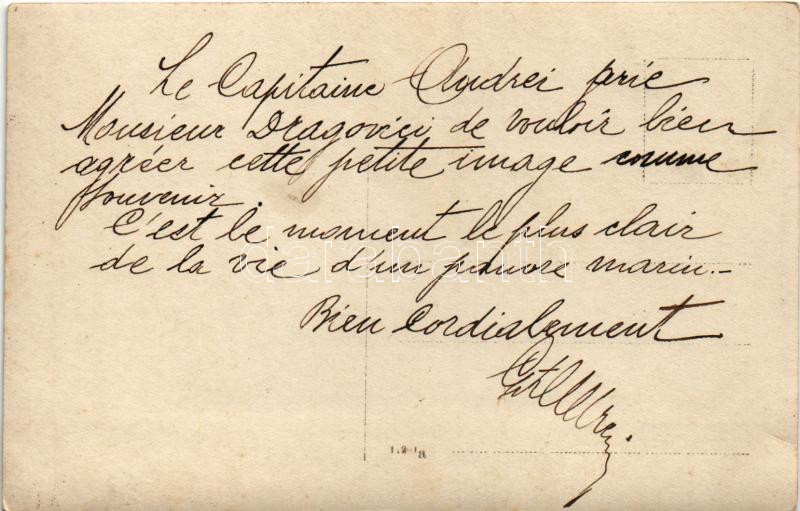 Le Capitaine Andrei prie
Monsieur Dragovici de vouloir bien
agréer cette petite image comme
souvenir.
C'est le moment le plus clair
de la vie d'un pauvre marin.-
Bien Cordialement
darabanth